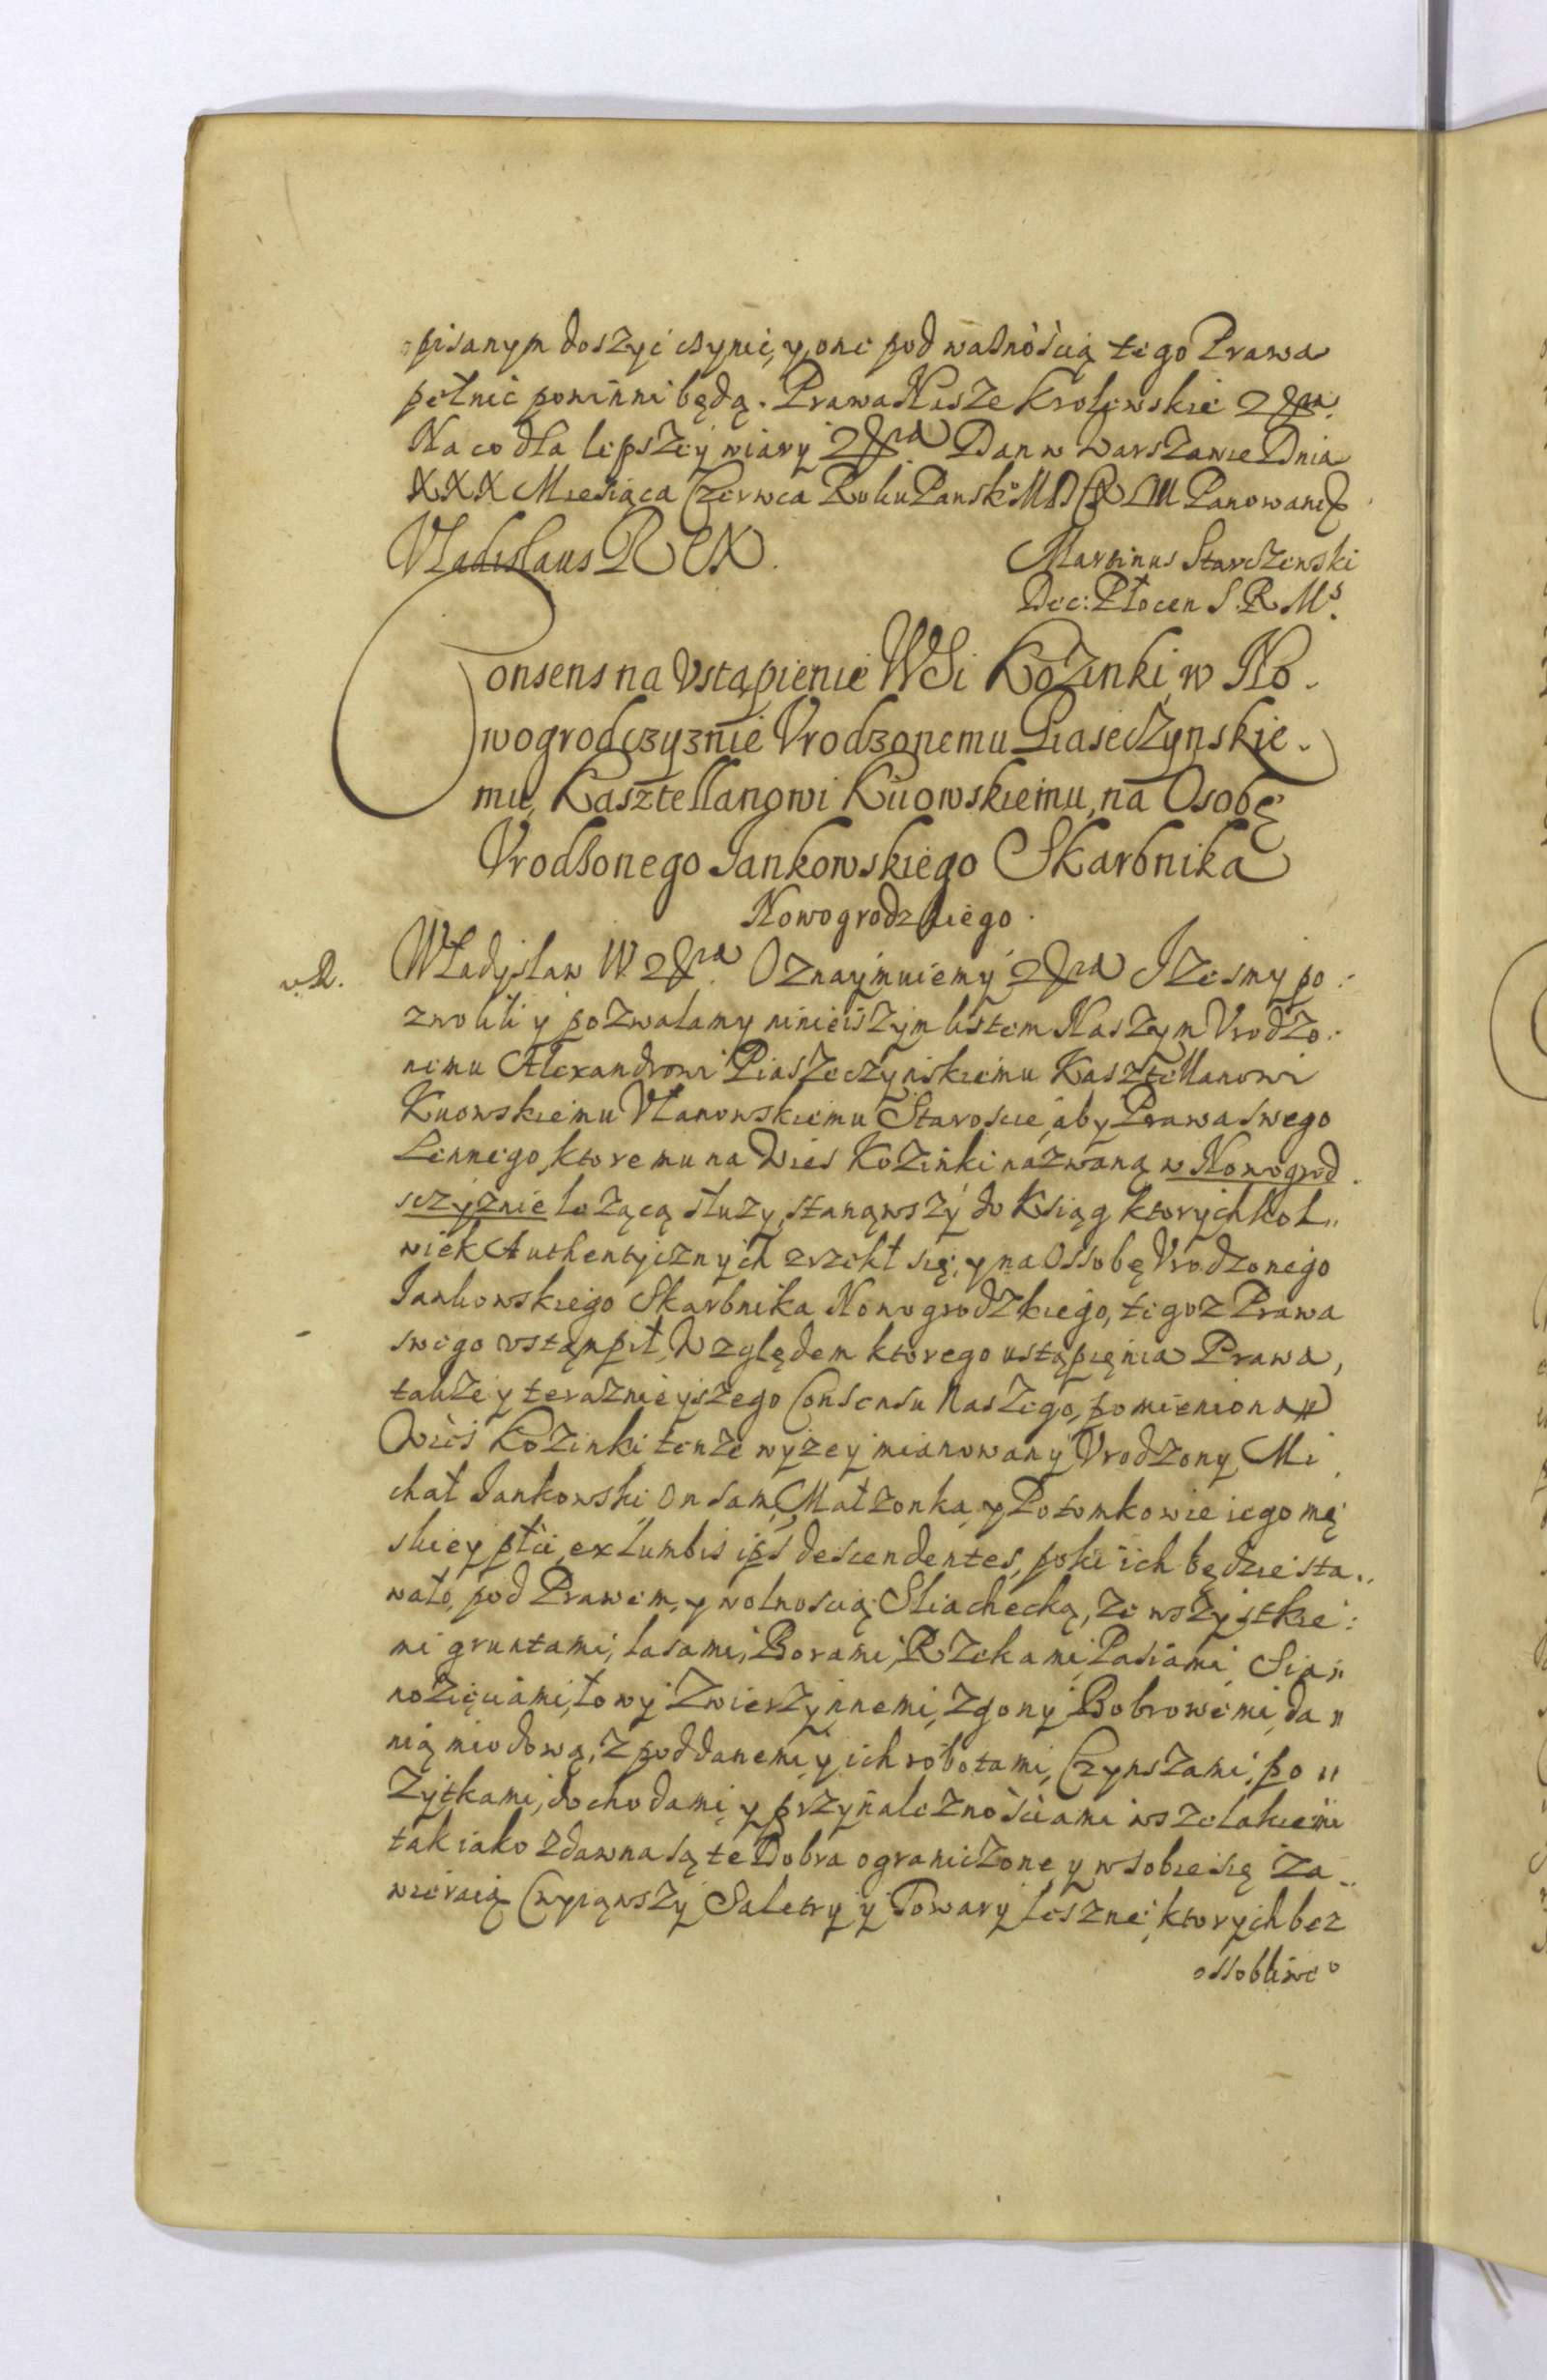 opisanym doszyć czynić, y one pod ważnością tego Prawa
pełnić powinni będą. Prawa Nasze Krolewskie &cra.
Na co dla lepszey wiary &cra Dan w Warszawie Dnia
XXX Miesiąca Czerwca Roku Pańskº Panowania
Vladislaus REX. Martinus Starczewski
Dec: Płocen S. R. Mˢ.
Consens na Vstąpienie WSi Kozinki w No-
wogrodczyznie Vrodzonemu Piaseczynskie-
mu, Kasztellanowi Kiiowskiemu, na Osobę
Vrodzonego Jankowskiego Skarbnika
Nowogrodzkiego.
Władysław IV. &cra. Oznaymuiemy &cra Izesmy po:
zwolili y pozwalamy ninieiszym listem Naszym Vrodzo:
nemu Alexandrowi Piaszeczyńskiemu Kasztellanowi
Kiiowskiemu Vlanowskiemu Staroscie, aby Prawa swego
Lennego, ktore mu na Wieś Kozinki nazwaną w Nowogrod-
sczyznie leżącą służy, stanąwszy do Ksiąg ktorychkol„
wiek Authentycznych zrzekł się, y na Ossobę Vrodzonego
Jankowskiego Skarbnika Nowogrodzkiego, tegoz Prawa
swego vstąmpił, Względem ktorego ustąpięnia Prawa,
także y teraznieyszego Consensu Naszego, pomieniona„
Wieś Kozinki tenze wyzey mianowany Vrodzony Mi
chał Jankowski on sam, Małzonka y Potomkowie iego mę
skiey płci, ex Lumbis ips descendentes, poki ich będzie sta„
wało, pod Prawem, y wolnoscią Sliachecką, ze wszystkie:
mi gruntami, lasami, Borami, Rzekami Pasiami Sia„
nożęciami, łowy Zwierzynnemi, Zgony Bobrowemi, da„
nią miodową, z poddanemi y ich robotami, Czynszami, po„
Zytkami, dochodami y przynaleznościami wszelakiemi
tak iako zdawna są te Dobra ograniczone y w sobie się Za„
wieraią (wyiąwszy Saletry y Towary Leszne, ktorych bez
ossobliweº